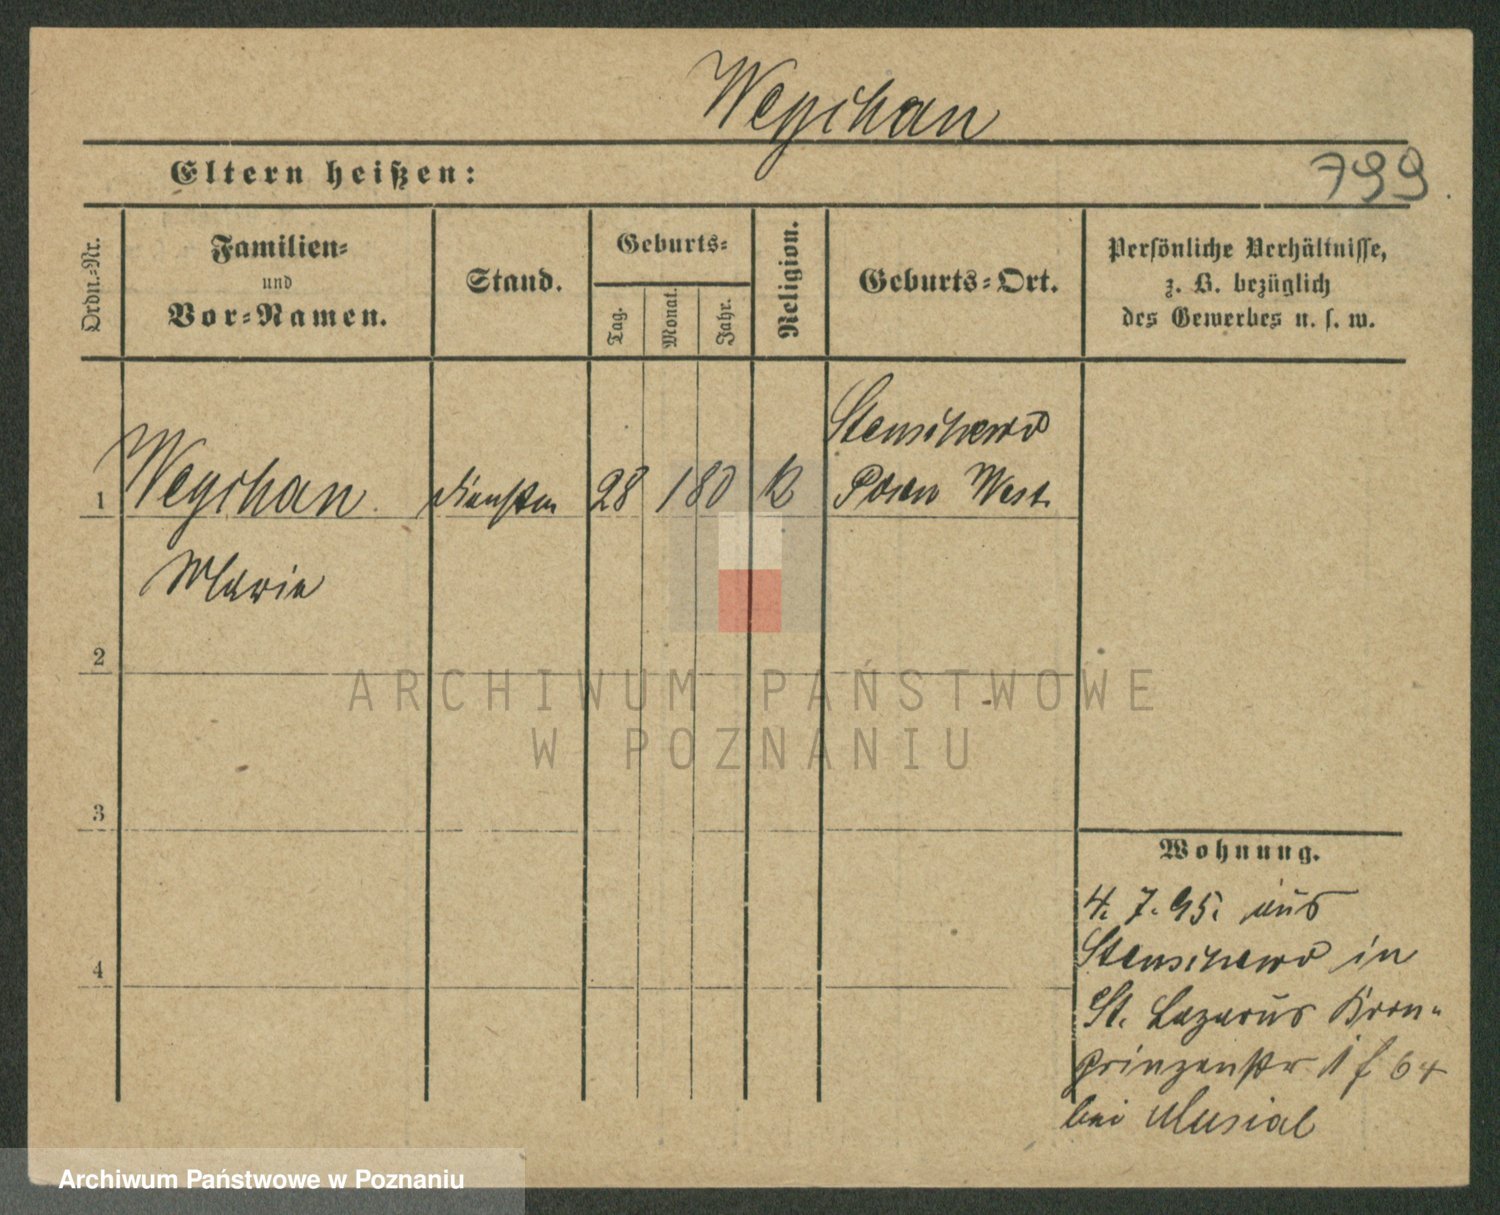 Wegihan
Eltern heißen:
799
Ordn.=Nr.
Familien=
und
Vor=Namen.
Stand.
Geburts=
Tag.
Monat.
Jahr.
Religion.
Geburts=Ort.
Persönliche Verhältnisse,
z. B. bezüglich
des Gewerbes u. s. w.
1 Wegihan dienstm 28 1 80 k Stenschewo
Posen West.
Marie
2
3
4
Wohnung.
4. 7. 95. aus
Stenschewo in
St. Lazarus Kron-
prinzenstr
bei Musial
ARCHIWUM PAŃSTWOWE
W POZNANIU
Archiwum Państwowe w Poznaniu